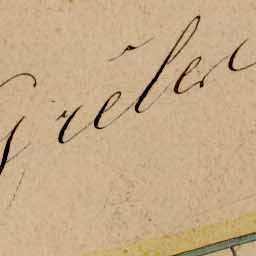 Grêler